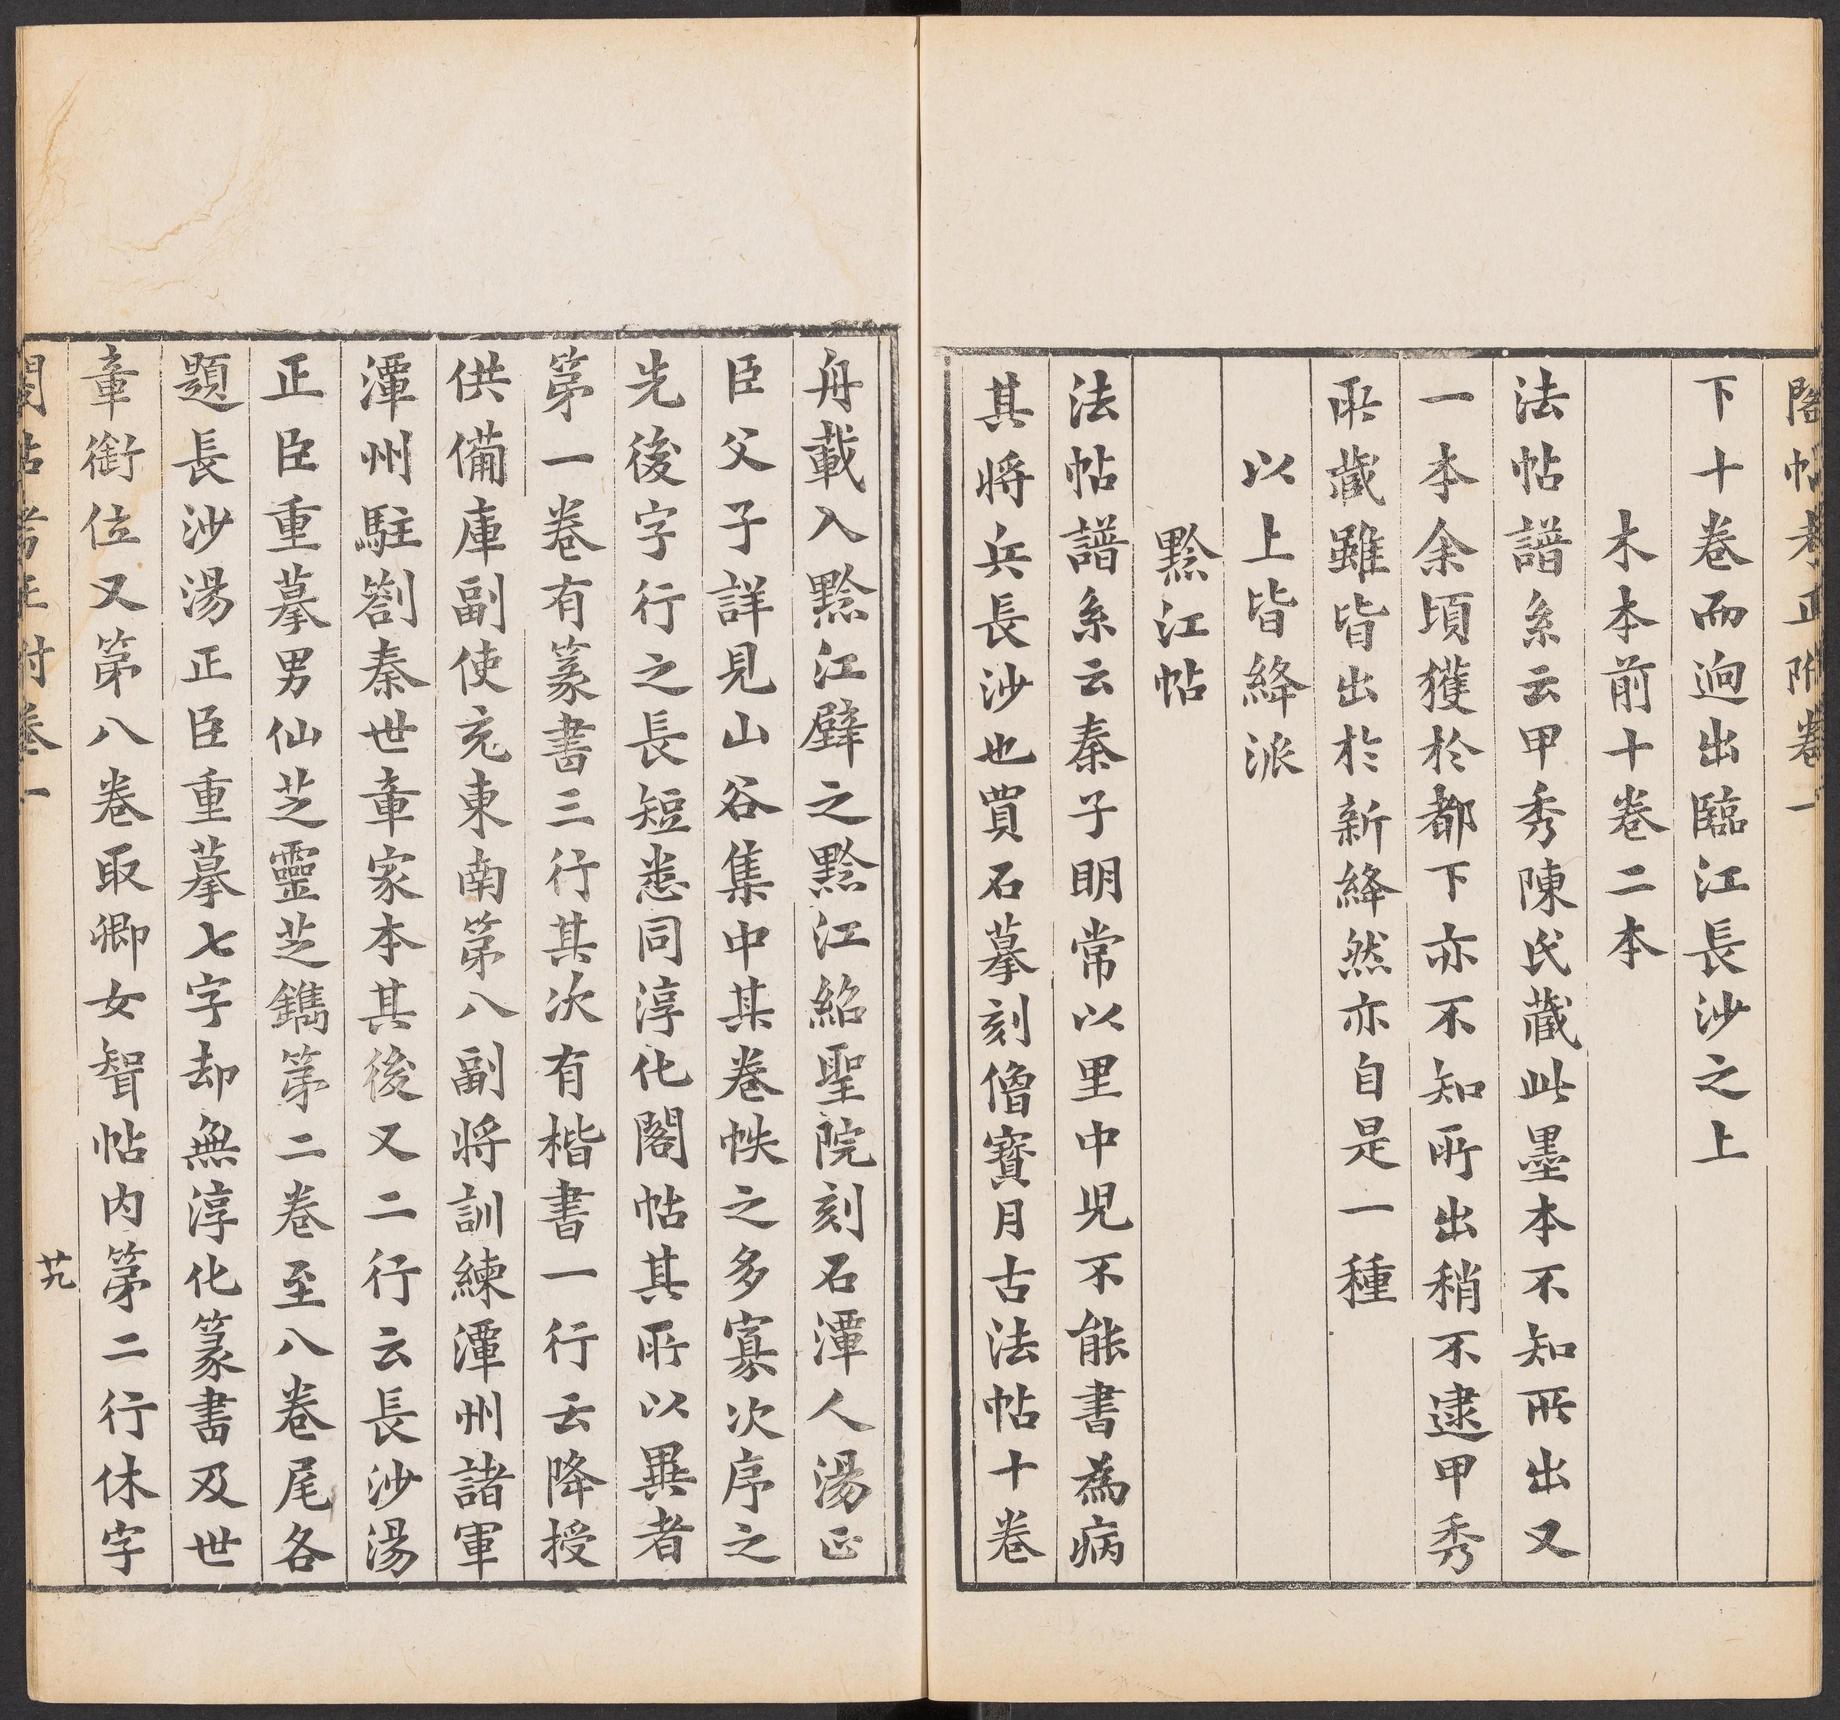 閣帖考正附卷一
下十卷而逈出臨江長沙之上
木本前十卷二本
法帖譜系云甲秀陳氏藏此墨本不知所出又
一本余頃獲於都下亦不知所出稍不逮甲秀
所藏雖皆出於新絳然亦自是一種
以上皆絳派
黔江帖
法帖譜系云秦子明常以里中児不能書為病
其將兵長沙也買石摹刻僧寳月古法帖十卷
舟載入黔江壁之黔江紹聖院刻石潭人湯正
臣父子詳見山谷集中其卷帙之多寡次序之
先後字行之長短悉同淳化閣帖其所以異者
第一卷有篆書三行其次有楷書一行云降授
供備庫副使充東南第八副將訓練潭州諸軍
潭州駐劄秦世章家本其後又二行云長沙湯
正臣重摹男仙芝靈芝鐫第二卷至八卷尾各
題長沙湯正臣重摹七字却無淳化篆書及世
章銜位又第八卷取卿女聟帖内第二行休字
閣帖考正附卷一
芄